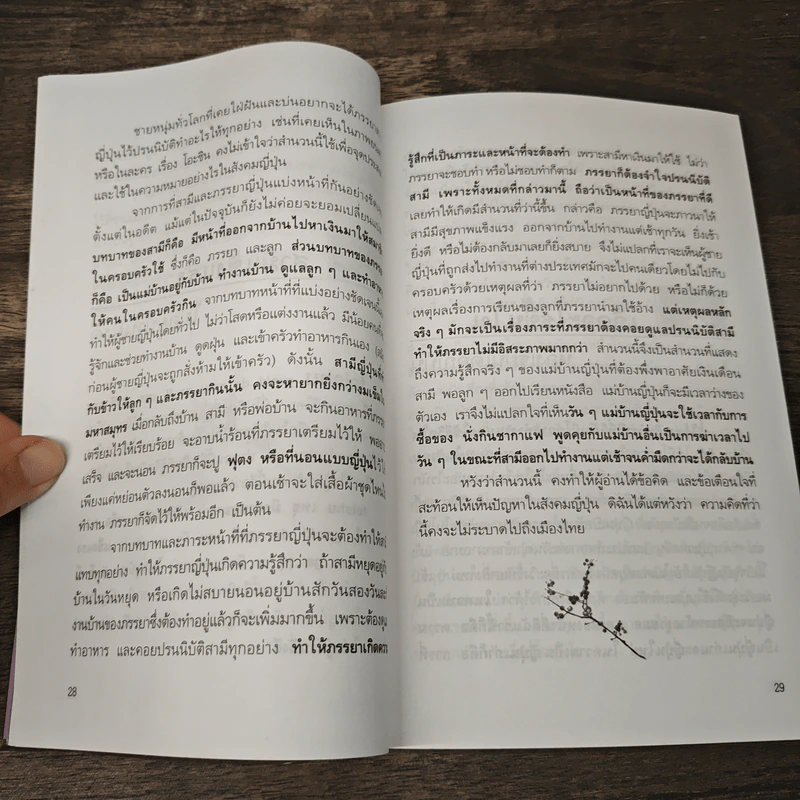 ชายหนุ่มทั่วโลกที่เคยใฝ่ฝันและบ่นอยากจะได้ภรรยา
ญี่ปุ่นไว้ปรนนิบัติทำอะไรให้ทุกอย่าง เช่นที่เคยเห็นในภาพยนตร์
หรือในละคร เรื่อง โอะชิน คงไม่เข้าใจว่าสำนวนนี้ใช้เพื่อจุดประ
และใช้ในความหมายอย่างไรในสังคมญี่ปุ่น
จากการที่สามีและภรรยาญี่ปุ่นแบ่งหน้าที่กันอย่างชัดเจน
ตั้งแต่ในอดีต แม้แต่ในปัจจุบันก็ยังไม่ค่อยจะยอมเปลี่ยนแปลง
บทบาทของสามีก็คือ มีหน้าที่ออกจากบ้านไปหาเงินมาให้สมาชิก
ในครอบครัวใช้ ซึ่งก็คือ ภรรยา และลูก ส่วนบทบาทของภรรยา
ก็คือ เป็นแม่บ้านอยู่กับบ้าน ทำงานบ้าน ดูแลลูก ๆ และทำอาหาร
ให้คนในครอบครัวกิน จากบทบาทหน้าที่ที่แบ่งอย่างชัดเจนนี้
ทำให้ผู้ชายญี่ปุ่นโดยทั่วไป ไม่ว่าโสดหรือแต่งงานแล้ว มีน้อยคน
รู้จักและช่วยทำงานบ้าน ดูดฝุ่น และเข้าครัวทำอาหารกินเอง
ก่อนผู้ชายญี่ปุ่นจะถูกสั่งห้ามให้เข้าครัว) ดังนั้น สามีญี่ปุ่น
กับข้าวให้ลูก ๆ และภรรยากินนั้น คงจะหายากยิ่งกว่างมเข็มใน
มหาสมุทร เมื่อกลับถึงบ้าน สามี หรือพ่อบ้าน จะกินอาหารที่ภรรยา
เตรียมไว้ให้เรียบร้อย จะอาบน้ำร้อนที่ภรรยาเตรียมไว้ให้ พอ
เสร็จ และจะนอน ภรรยาก็จะปู ฟุตง หรือที่นอนแบบญี่ปุ่นไว้
เพียงแค่หย่อนตัวลงนอนก็พอแล้ว ตอนเช้าจะใส่เสื้อผ้าชุดไหน
ทำงาน ภรรยาก็จัดไว้ให้พร้อมอีก เป็นต้น
จากบทบาทและภาระหน้าที่ที่ภรรยาญี่ปุ่นจะต้องทำให้
แทบทุกอย่าง ทำให้ภรรยาญี่ปุ่นเกิดความรู้สึกว่า ถ้าสามีหยุดอยู่
บ้านในวันหยุด หรือเกิดไม่สบายนอนอยู่บ้านสักวันสองวัน
งานบ้านของภรรยาซึ่งต้องทำอยู่แล้วก็จะเพิ่มมากขึ้น เพราะต้อง
ทำอาหาร และคอยปรนนิบัติสามีทุกอย่าง ทำให้ภรรยาเกิดความ
28
รู้สึกที่เป็นภาระและหน้าที่จะต้องทำ เพราะสามีหาเงินมาให้ใช้ ไม่ว่า
ภรรยาจะชอบทำ หรือไม่ชอบทำก็ตาม ภรรยาก็ต้องจำใจปรนนิบัติ
สามี เพราะทั้งหมดที่กล่าวมานี้ ถือว่าเป็นหน้าที่ของภรรยาที่ดี
เลยทำให้เกิดมีสำนวนที่ว่านี้ขึ้น กล่าวคือ ภรรยาญี่ปุ่นจะภาวนาให้
สามีมีสุขภาพแข็งแรง ออกจากบ้านไปทำงานแต่เช้าทุกวัน ยิ่งเช้า
ยิ่งดี หรือไม่ต้องกลับมาเลยก็ยิ่งสบาย จึงไม่แปลกที่เราจะเห็นผู้ชาย
ญี่ปุ่นที่ถูกส่งไปทำงานที่ต่างประเทศมักจะไปคนเดียวโดยไม่ไปกับ
ครอบครัวด้วยเหตุผลที่ว่า ภรรยาไม่อยากไปด้วย หรือไม่ก็ด้วย
เหตุผลเรื่องการเรียนของลูกที่ภรรยานำมาใช้อ้าง แต่เหตุผลหลัก
จริง ๆ มักจะเป็นเรื่องภาระที่ภรรยาต้องคอยดูแลปรนนิบัติสามี
ทำให้ภรรยาไม่มีอิสระภาพมากกว่า สำนวนนี้จึงเป็นสำนวนที่แสดง
ถึงความรู้สึกจริง ๆ ของแม่บ้านญี่ปุ่นที่ต้องพึ่งพาอาศัยเงินเดือน
สามี พอลูก ๆ ออกไปเรียนหนังสือ แม่บ้านญี่ปุ่นก็จะมีเวลาว่างของ
ตัวเอง เราจึงไม่แปลกใจที่เห็นวัน ๆ แม่บ้านญี่ปุ่นจะใช้เวลากับการ
ซื้อของ นั่งกินชากาแฟ พูดคุยกับแม่บ้านอื่นเป็นการฆ่าเวลาไป
วัน ๆ ในขณะที่สามีออกไปทำงานแต่เช้าจนค่ำมืดกว่าจะได้กลับบ้าน
หวังว่าสำนวนนี้ คงทำให้ผู้อ่านได้ข้อคิด และข้อเตือนใจที่
สะท้อนให้เห็นปัญหาในสังคมญี่ปุ่น ดิฉันได้แต่หวังว่า ความคิดที่ว่า
นี้คงจะไม่ระบาดไปถึงเมืองไทย
29